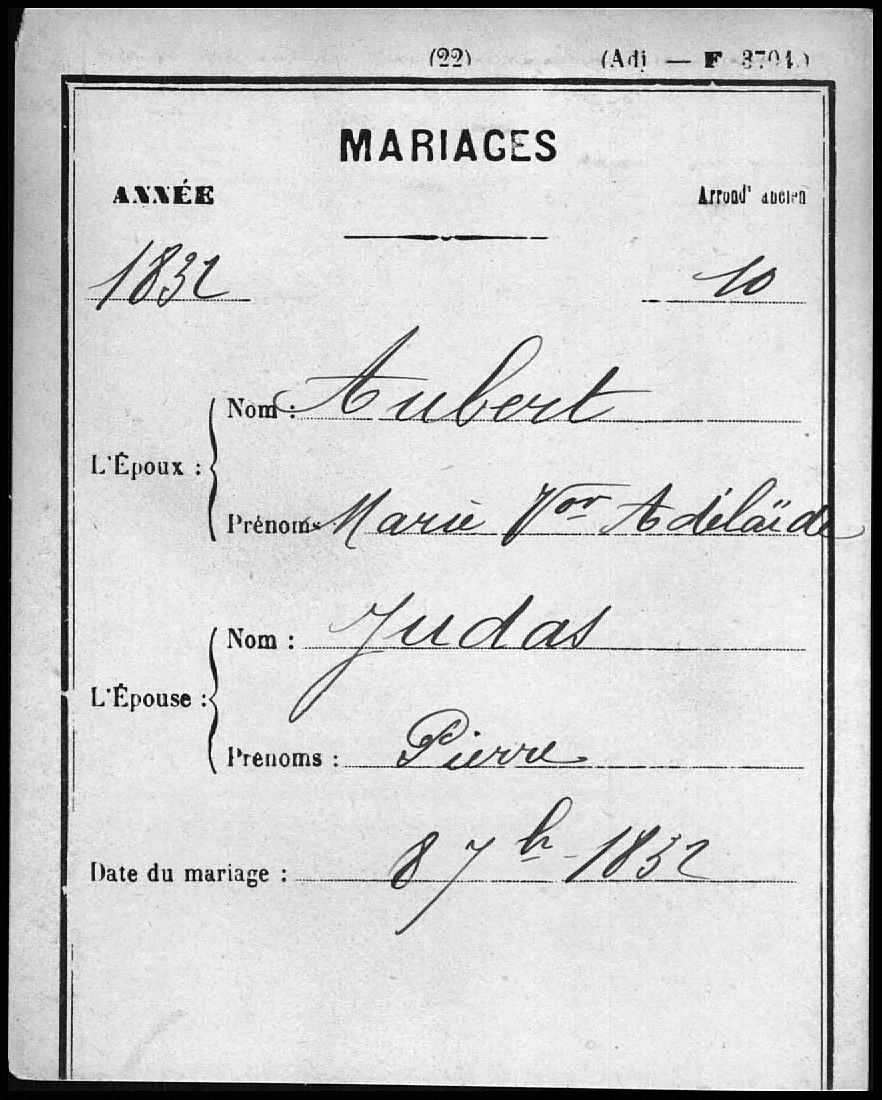 (22) (Adj — F 3704.)
MARIAGES
ANNÉE Arrondt ancien
1832 10
L'Époux :
Nom : Aubert
Prénoms Marie Vor Adélaïde
L'Épouse :
Nom : Judas
Prenoms : Pierre
Date du mariage : 8 7b 1832